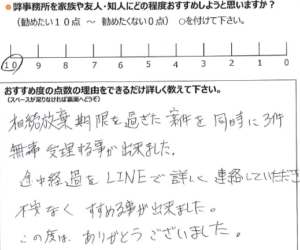 ●弊事務所を家族や友人・知人にどの程度おすすめしようと思いますか？
（勧めたい10点 ～ 勧めたくない0点） ○を付けて下さい。
10 9 8 7 6 5 4 3 2 1 0
おすすめ度の点数の理由をできるだけ詳しく教えて下さい。
（スペースが足りなければ裏面へどうぞ）
相続放棄期限を過ぎた案件を同時に3件
無事受理する事が出来ました。
途中経過をLINEで詳しく連絡していただき
不安なくすすめる事が出来ました。
この度は、ありがとうございました。